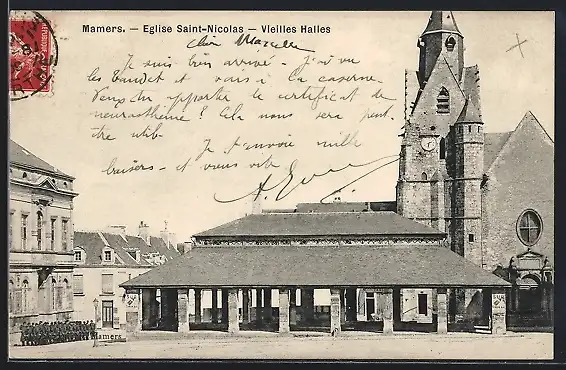 Mamers. — Eglise Saint-Nicolas — Vieilles Halles
cher Marcelle
Je suis bien arrivé. J'ai vu
les Baudet et vais à la caserne.
Veux-tu apporter le certificat de
neurasthénie? Cela nous sera peut
être utile
Je t'envoie mille
baisers et vous
Mamers